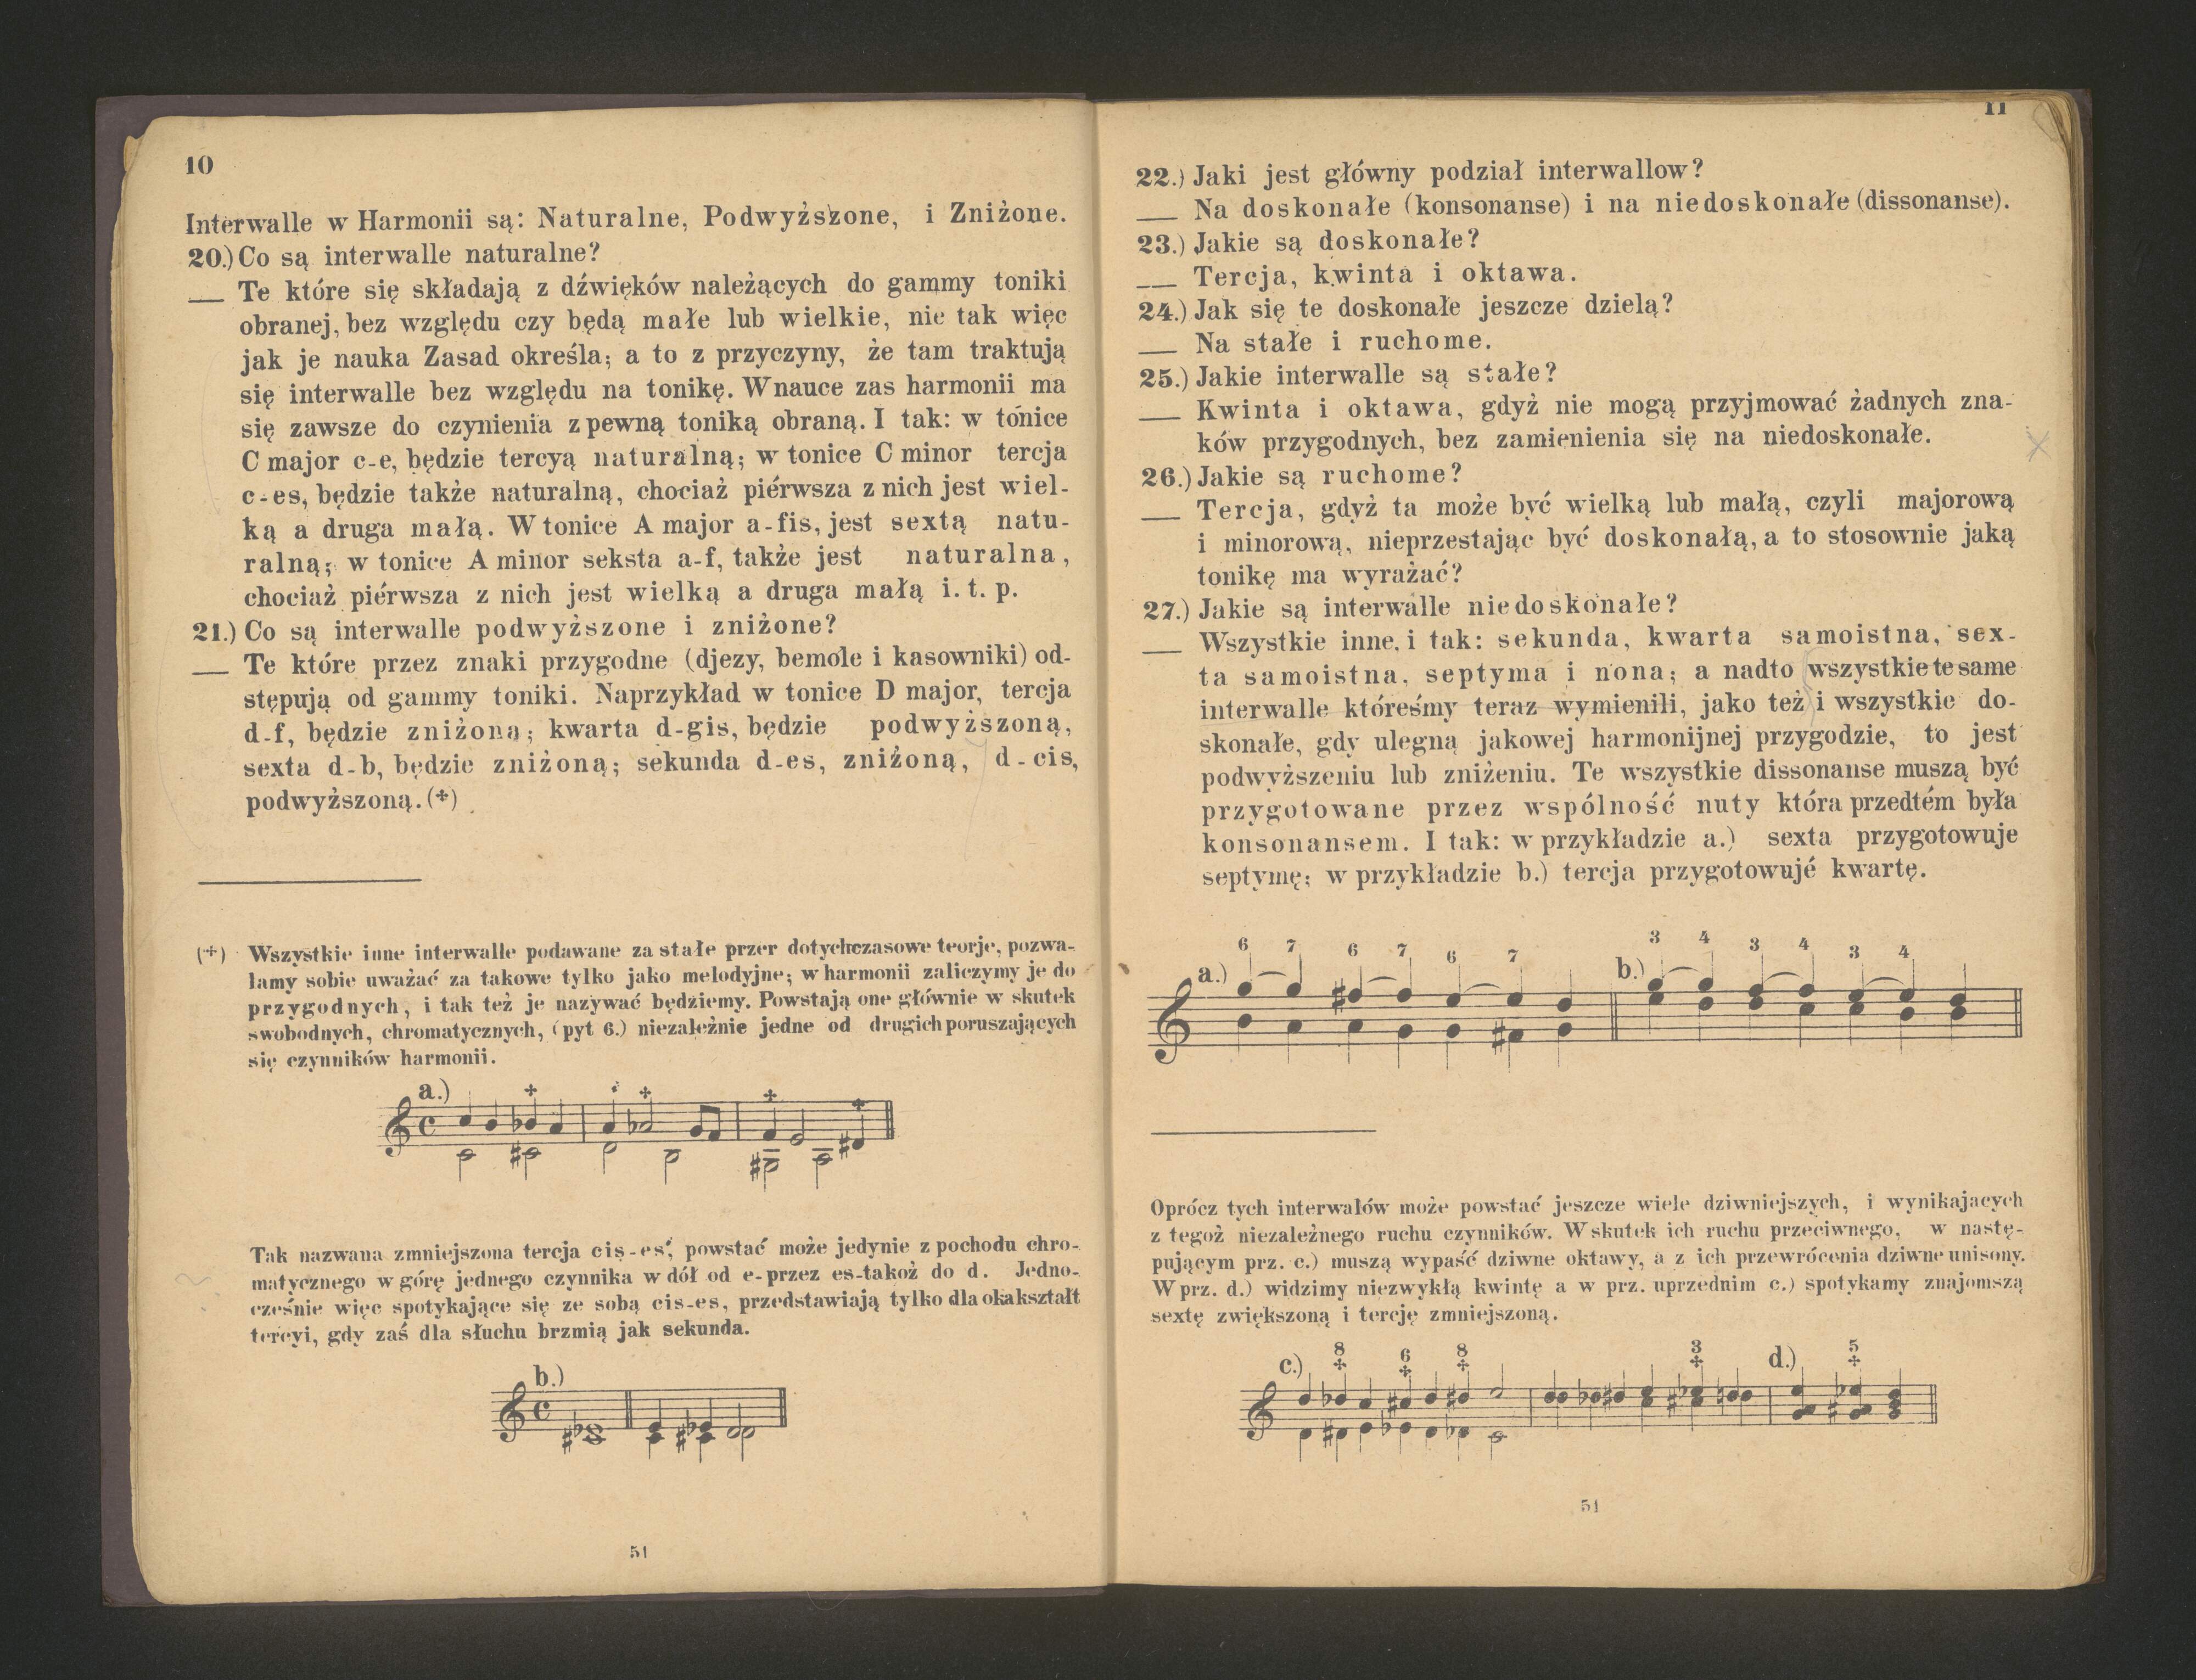 10
Interwalle w Harmonii są: Naturalne, Podwyższone, i Zniżone.
20.) Co są interwalle naturalne?
— Te które się składają z dźwięków należących do gammy toniki
obranej, bez względu czy będą małe lub wielkie, nie tak więc
jak je nauka Zasad określa; a to z przyczyny, że tam traktują
się interwalle bez względu na tonikę. W nauce zas harmonii ma
się zawsze do czynienia z pewną toniką obraną. I tak: w tonice
C major c-e, będzie tercyą naturalną; w tonice C minor tercja
c-es, będzie także naturalną, chociaż piérwsza z nich jest wiel-
ką a druga małą. W tonice A major a-fis, jest sextą natu-
ralną; w tonice A minor seksta a-f, także jest naturalna,
chociaż piérwsza z nich jest wielką a druga małą i. t. p.
21.) Co są interwalle podwyższone i zniżone?
— Te które przez znaki przygodne (djezy, bemole i kasowniki) od-
stępują od gammy toniki. Naprzykład w tonice D major, tercja
d-f, będzie zniżoną; kwarta d-gis, będzie podwyższoną,
sexta d-b, będzie zniżoną; sekunda d-es, zniżoną, d-cis,
podwyższoną. (+)
(+) Wszystkie inne interwalle podawane za stałe przer dotychczasowe teorje, pozwa-
lamy sobie uważać za takowe tylko jako melodyjne; w harmonii zaliczymy je do
przygodnych, i tak też je nazywać będziemy. Powstają one głównie w skutek
swobodnych, chromatycznych, (pyt 6.) niezależnie jedne od drugich poruszających
się czynników harmonii.
a.)
Tak nazwana zmniejszona tercja cis-es, powstać może jedynie z pochodu chro-
matycznego w górę jednego czynnika w dół od e-przez es-takoż do d. Jedno-
cześnie więc spotykające się ze sobą cis-es, przedstawiają tylko dla oka kształt
tercyi, gdy zaś dla słuchu brzmią jak sekunda.
b.)
51
11
22.) Jaki jest główny podział interwallow?
— Na doskonałe (konsonanse) i na niedoskonałe (dissonanse).
23.) Jakie są doskonałe?
— Tercja, kwinta i oktawa.
24.) Jak się te doskonałe jeszcze dzielą?
— Na stałe i ruchome.
25.) Jakie interwalle są stałe?
— Kwinta i oktawa, gdyż nie mogą przyjmować żadnych zna-
ków przygodnych, bez zamienienia się na niedoskonałe.
26.) Jakie są ruchome?
— Tercja, gdyż ta może być wielką lub małą, czyli majorową
i minorową, nieprzestając być doskonałą, a to stosownie jaką
tonikę ma wyrażać?
27.) Jakie są interwalle niedoskonałe?
— Wszystkie inne, i tak: sekunda, kwarta samoistna, sex-
ta samoistna, septyma i nona; a nadto wszystkie te same
interwalle któreśmy teraz wymienili, jako też i wszystkie do-
skonałe, gdy ulegną jakowej harmonijnej przygodzie, to jest
podwyższeniu lub zniżeniu. Te wszystkie dissonanse muszą być
przygotowane przez wspólność nuty która przedtém była
konsonansem. I tak: w przykładzie a.) sexta przygotowuje
septymę; w przykładzie b.) tercja przygotowujé kwartę.
a.) 6 7 6 7 6 7 b.) 3 4 3 4 3 4
Oprócz tych interwałów może powstać jeszcze wiele dziwniejszych, i wynikajacych
z tegoż niezależnego ruchu czynników. W skutek ich ruchu przeciwnego, w nastę-
pującym prz. c.) muszą wypaść dziwne oktawy, a z ich przewrócenia dziwne unisony.
W prz. d.) widzimy niezwykłą kwintę a w prz. uprzednim c.) spotykamy znajomszą
sextę zwiększoną i tercję zmniejszoną.
c.) 8 6 8 3 d.) 5
51